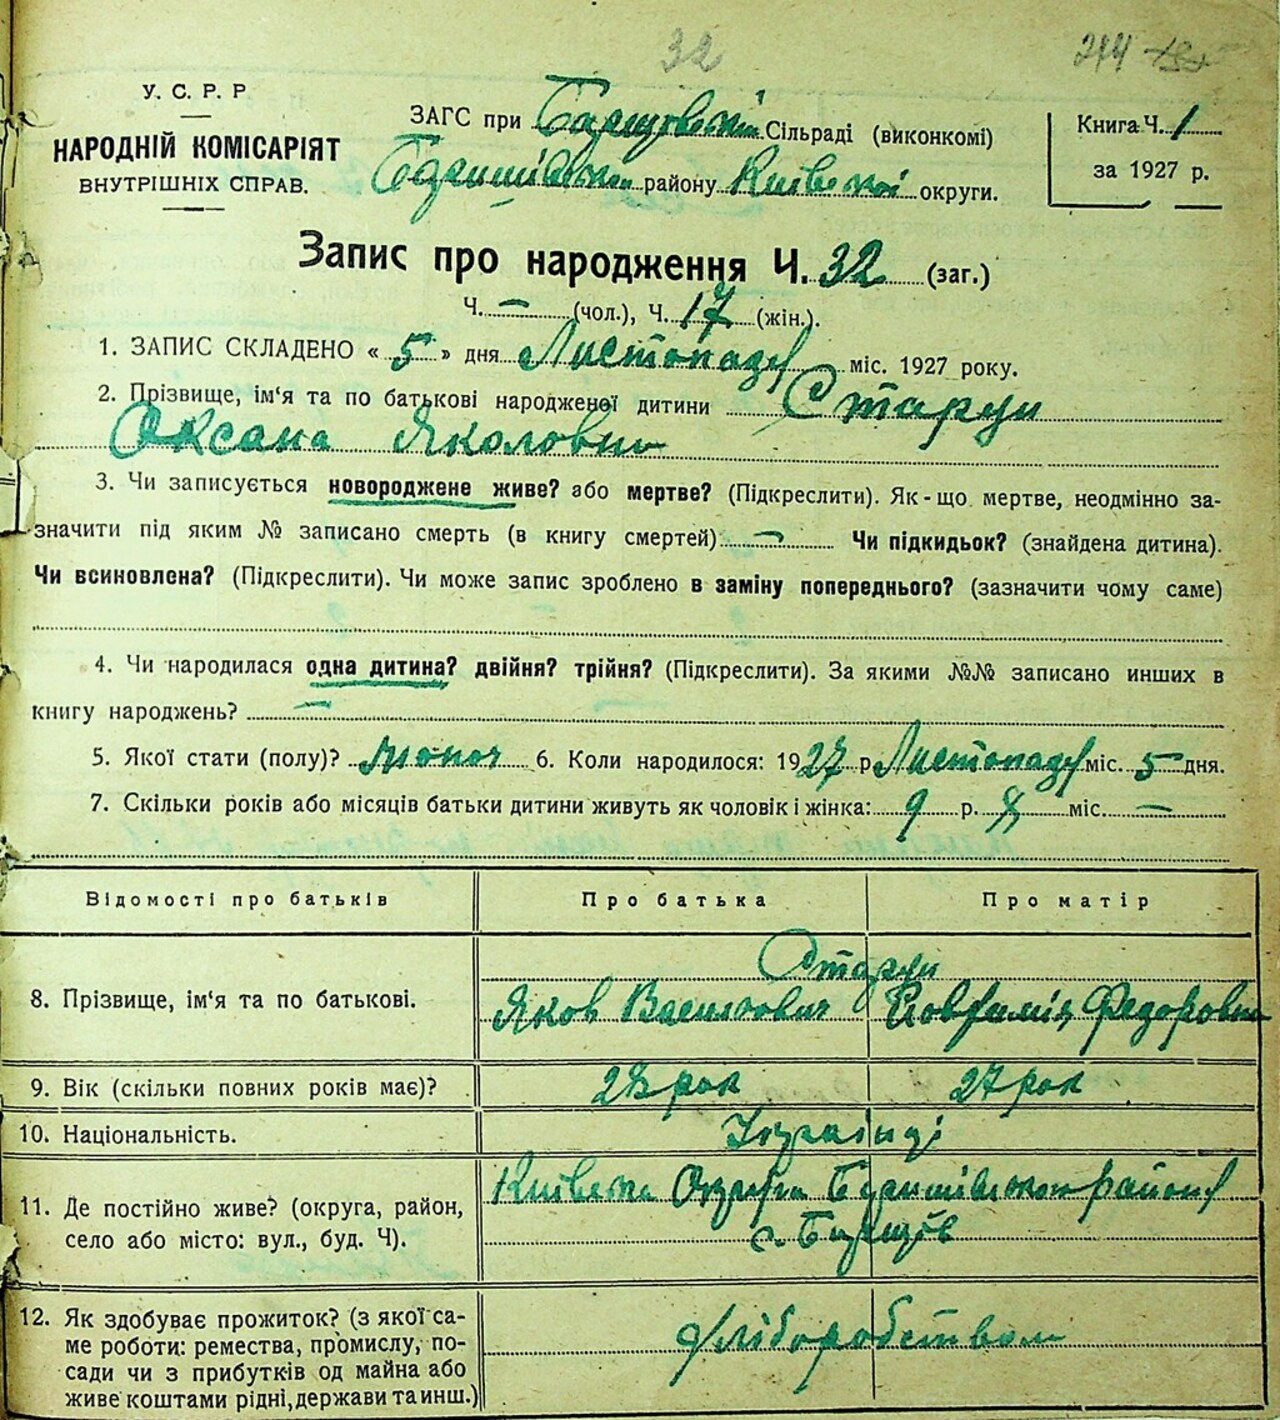 32
244
У. С. Р. Р
НАРОДНІЙ КОМІСАРІЯТ
ВНУТРІШНІХ СПРАВ.
ЗАГС при Сільраді (виконкомі)
району Київської округи.
Книга Ч. 1
за 1927 р.
Запис про народження Ч. 32 (заг.)
Ч. — (чол.), Ч. 17 (жін.).
1. ЗАПИС СКЛАДЕНО « 5 » дня Листопаду міс. 1927 року.
2. Прізвище, ім'я та по батькові народженої дитини
Оксана Яковловна
3. Чи записується новороджене живе? або мертве? (Підкреслити). Як-що мертве, неодмінно за-
значити під яким № записано смерть (в книгу смертей) — Чи підкидьок? (знайдена дитина).
Чи всиновлена? (Підкреслити). Чи може запис зроблено в заміну попереднього? (зазначити чому саме)
4. Чи народилася одна дитина? двійня? трійня? (Підкреслити). За якими №№ записано инших в
книгу народжень? —
5. Якої стати (полу)? жіноч 6. Коли народилося: 1927 р Листопаду міс. 5 дня.
7. Скільки років або місяців батьки дитини живуть як чоловік і жінка: 9 р. міс. —
Відомості про батьків Про батька Про матір
8. Прізвище, ім'я та по батькові.
Яков Васильович Федоровна
9. Вік (скільки повних років має)? 28 рок 27 рок
10. Національність. Українці
11. Де постійно живе? (округа, район,
село або місто: вул., буд. Ч).
Київська Округа району
12. Як здобуває прожиток? (з якої са-
ме роботи: ремества, промислу, по-
сади чи з прибутків од майна або
живе коштами рідні, держави та инш.)
хліборобством